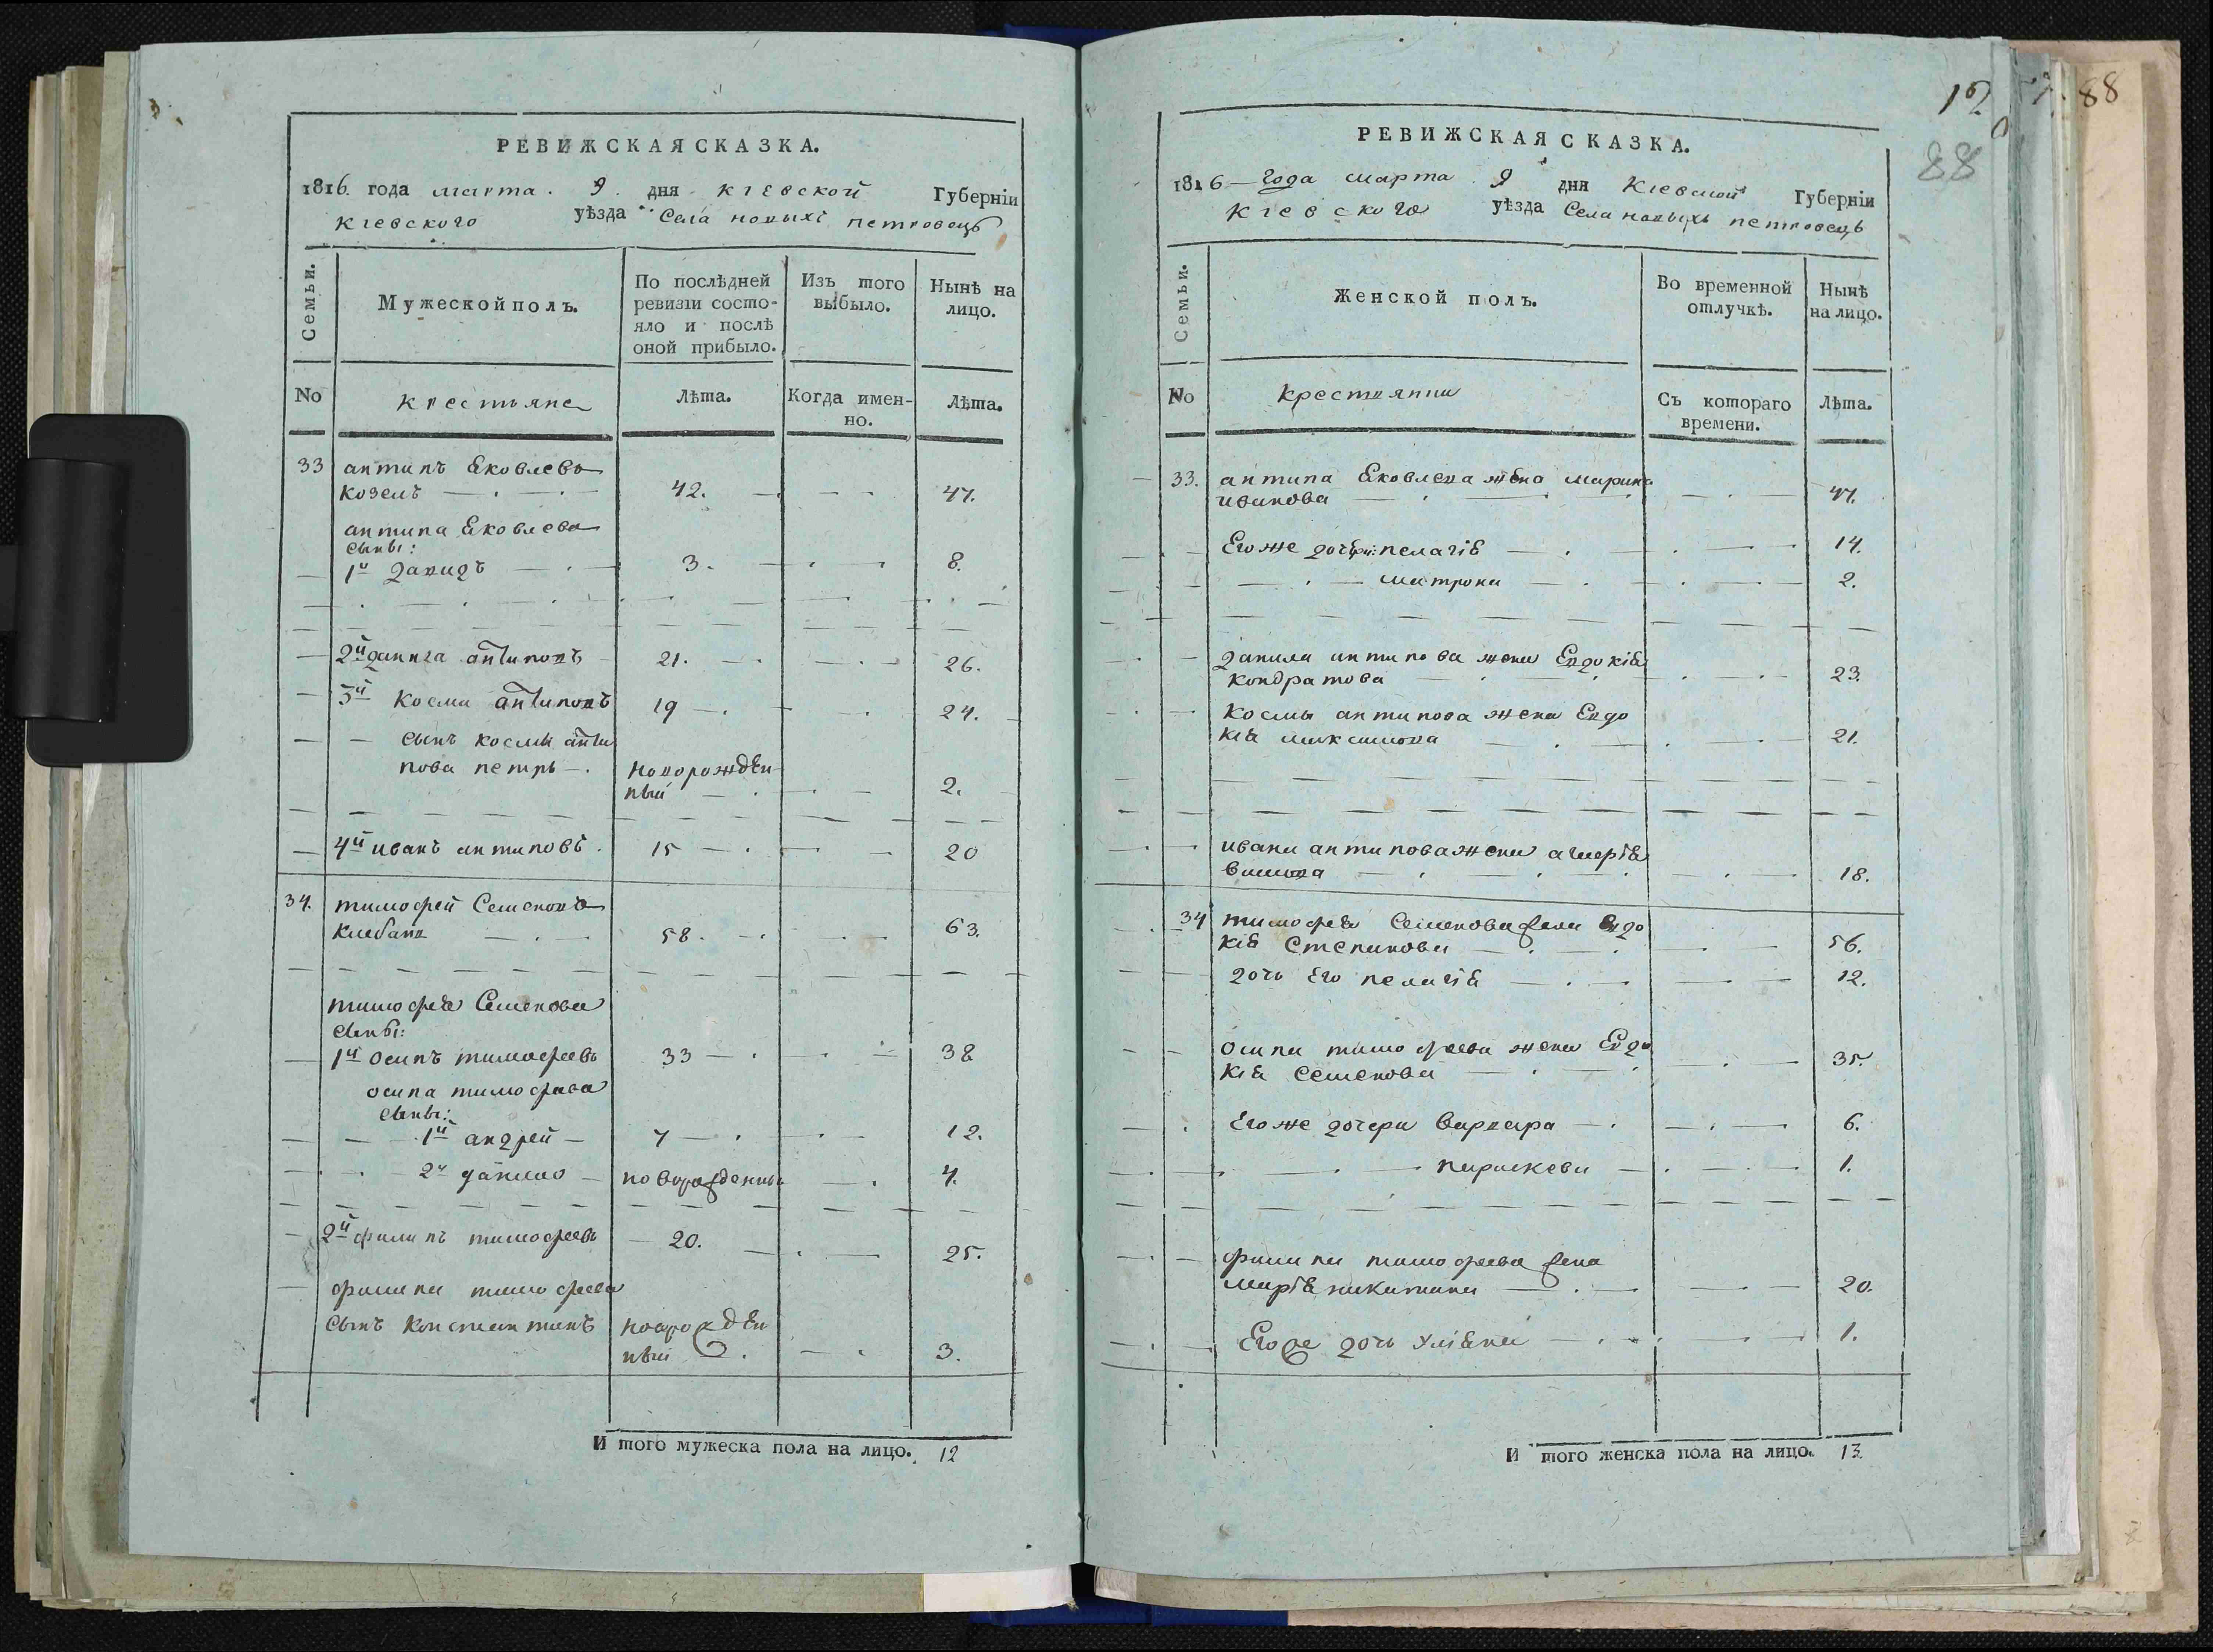 РЕВИЖСКАЯ СКАЗКА.
1816. года марта. 9. дня кіевской Губерніи
кіевского уѣзда Села новыхъ петровецъ
Семьи.
Мужеской полъ.
По послѣдней ревизіи состо-
яло и послѣ
оной прибыло.
Изъ того
выбыло.
Нынѣ на
лицо.
No
крестьяне
Лѣта.
Когда имен-
но.
Лѣта.
33 антипъ Ековлевъ
козелъ 42. 47.
антипа Ековлева
сыны:
1й давидъ 3. 8.
2й данила антиповъ 21. 26.
3й косма антиповъ 19 24.
сынъ космы анти
пова петръ новорожден
ный 2.
4й иванъ антиповъ 15 20
34. тимофей Семеновъ
клебанъ 58. 63.
тимофея Семенова
сыны:
1й осипъ тимофеевъ 33 38
осипа тимофеева
сыны:
1й андрей 7 12.
2й данило новорожденный 4.
2й филипъ тимофеевъ 20. 25.
филипа тимофеева
сынъ константинъ новрожден
ный 3.
И того мужеска пола на лицо. 12
12
88
88
РЕВИЖСКАЯ СКАЗКА.
1816 года марта 9 дня Кіевской Губерніи
кіевского уѣзда Села новыхъ петровецъ
Семьи.
Женской полъ.
Во временной
отлучкѣ.
Нынѣ
на лицо.
No
крестьянки
Съ котораго
времени.
Лѣта.
33. антипа Ековлева жена марина
иванова 47.
Егоже дочери: пелагія 14.
матрона 2.
данила антипова жена Евдокія
кондратова 23.
космы антипова жена Евдо
кія максимова 21.
ивана антипова жена
18.
34 тимофея Семенова жена Евдо
кія Степанова 56.
дочь Его пелагія 12.
осипа тимофеева жена Евдо
кія семенова 35.
Егоже дочери варвара 6.
параскева 1.
филипа тимофеева жена
марія никитина 20.
Егоже дочь Уліяна 1.
И того женска пола на лицо. 13